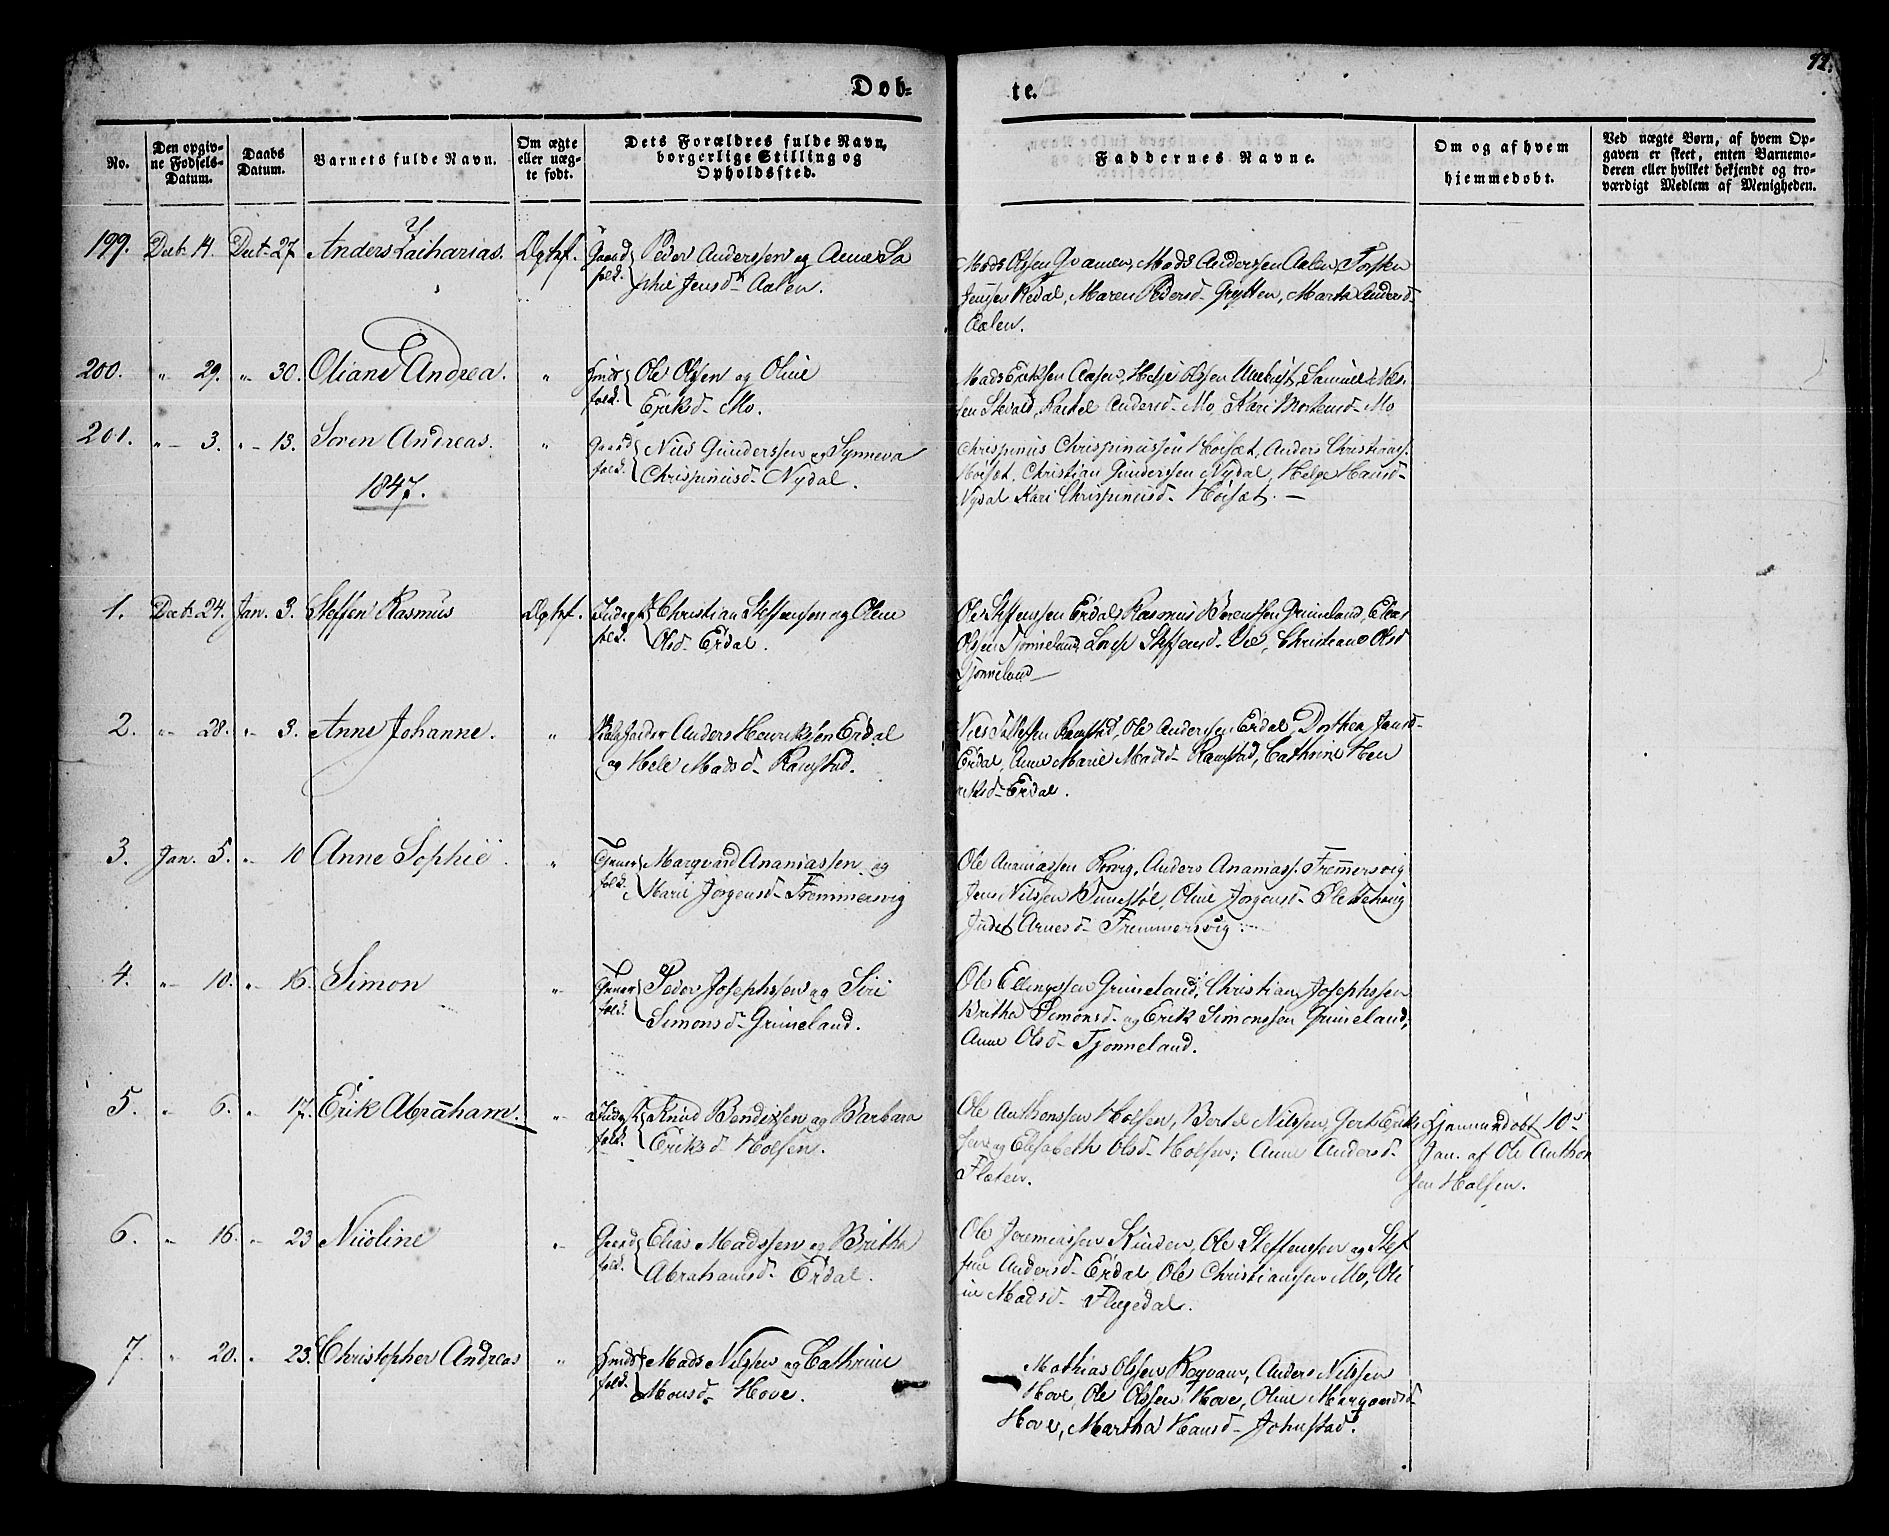 92.
Døb=
te.
No.
Den opgiv-
ne Fødsels-
Datum.
Daabs
Datum.
Barnets fulde Navn.
Om ægte
eller uæg-
te født.
Dets Forældres fulde Navn,
borgerlige Stilling og
Opholdssted.
Faddernes Navne.
Om og af hvem
hjemmedøbt.
Ved uægte Børn, af hvem Op-
gaven er skeet, enten Barnemo-
deren eller hvilket bekjendt og tro-
værdigt Medlem af Menigheden.
199. Decb. 14. Decb. 27 Anders Zacharias. Ægtef. Gaard
fold. Peder Anderssen og Anne So
phie Jensd. Aalen.
Mads Olssen Qvamen, Mads Anderssen Aalen, Torsten
Jenssen Redal, Maren Pedersd. Grytten, Marta Andersd.
Aalen.
200. " 29. " 30. Oliane Andrea. " Huus
fold. Ole Olssen og Oline
Eriksd. Mo.
Mads Erikssen Aasen, Helje Olssen, Samuel
Rachel Andersd. Mo, Kari Mortensd. Mo
201. " 3. " 13. Søren Andreas. " Gaard
fold. Nils Gunderssen og Synneva
Chrispinusd. Nydal.
Chrispinus Chrispinussen Hoisæt, Anders Christians.
Hoisæt, Christian Gunderssen Nydal, Helge Hansd.
Nydal Kari Chrispinusd. Hoisæt. —
1847.
1. Decb. 24. Jan. 3. Steffen Rasmus Ægtef. Inderst
fold. Christian Steffenssen og Olene
Olsd. Erdal.
Ole Steffenssen Erdal, Rasmus Berentsen Grimeland,
Olssen Tjønneland, Steffensd. Vie, Christiane Olsd
Tjønneland —
2. " 28. " 3. Anne Johanne. " Anders Henriksøn Erdal
og Hele Madsd. Ramstad.
Nils Ramstad, Ole Anderssen Erdal, Dorthea Jansd.
Erdal, Anne Marie Madsd. Ramstad, Cathrine Hen
riksd. Erdal.
3. Jan. 5. " 10 Anne Sophie. " Tjener
fold. Marqvard Ananiassen og
Marie Jørgensd. Fremmersvig
Ole Ananiassen, Anders Ananiass. Fremmersvig
Jens Nilssen, Oline Jørgensd. Slettehoug
Judet Arnesd. Fremmersvig.
4. " 10. " 16. Simon " Tjener
fold. Peder Josephssen og Siri
Simonsd. Grimeland.
Ole Ellingssen Grimeland, Christian Josephssen
Britha Simonsd. og Erik Simonssen Grimeland,
Anne Olsd. Tjønneland.
5. " 6. " 17. Erik Abraham. " Inderst
fold. Knud Bendixsen og Barbara
Eriksd. Holsen.
Ole Anthonssen Holsen, Bertel Nilssen, Gert Eriks
sen og Elisabeth Olsd. Holsen, Anne Andersd.
Flaten.
Hjemmedøbt 10de
Jan. af Ole Anthon
sen Holsen.
6. " 16. " 23 Nicoline " Gaard
fold. Elias Madssen og Britha
Abrahamsd. Erdal.
Ole Jeremiassen Kinden, Ole Steffenssen og Stef
fine Andersd. Erdal, Ole Christianssen Mo, Oli
ne Madsd. Flugedal.
7. " 20. " 23. Christopher Andreas " Huus
fold. Mads Nilssen og Cathrine
Monsd. Hove.
Mathias Olssen, Anders Nilssen
Hove, Ole Olssen Hove, Oline Marqvardsd.
Hove, Martha Hansd. Johnstad.